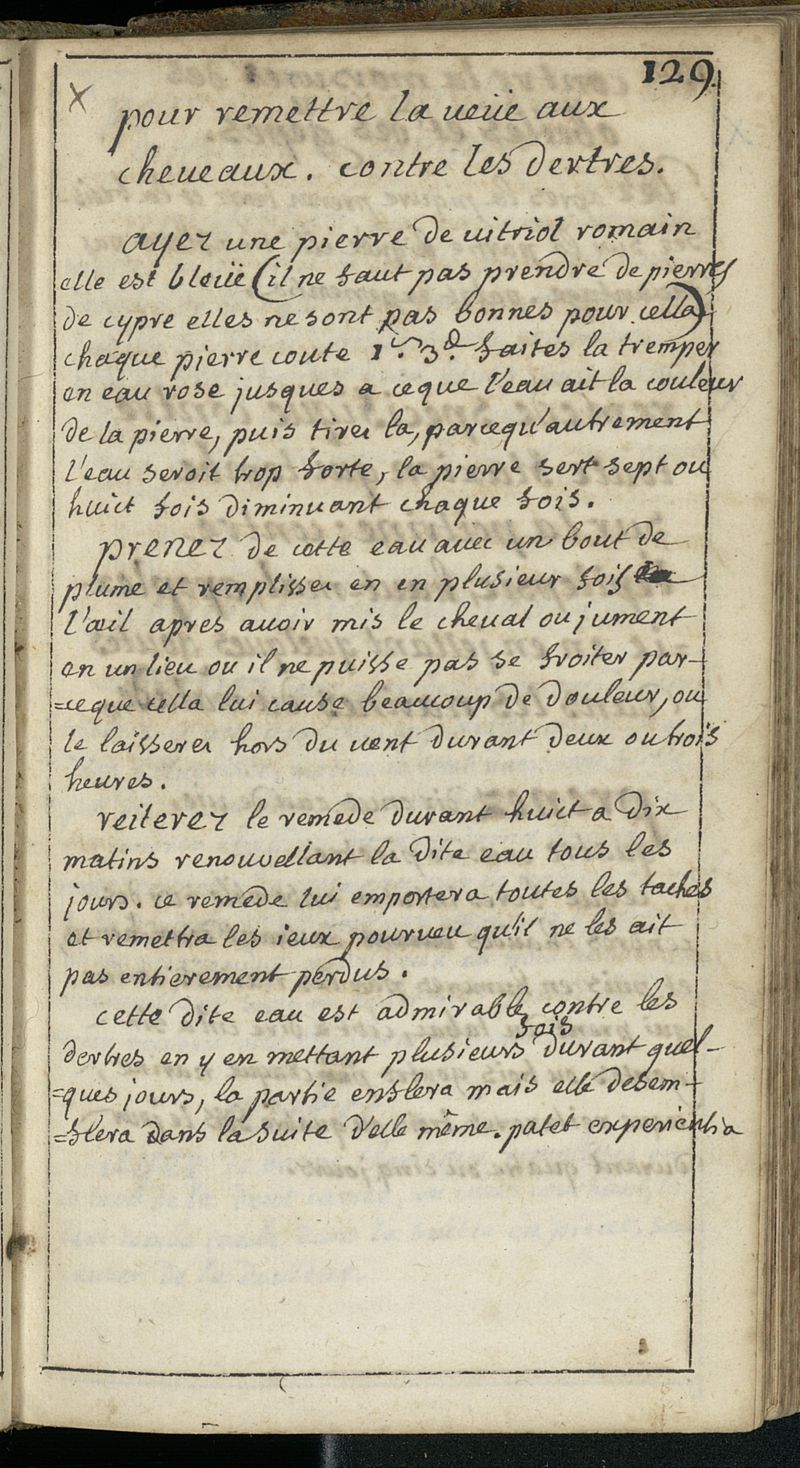 129
x
pour remettre la ueüe aux
cheueaux. contre les dertres.
ayez une pierre de uitriol romain
elle est bleüe (il ne faut pas prendre de pierres
de cypre elles ne sont pas bonnes pour cella)
chaque pierre coute 1s. 3d. faites la tremper
en eau rose jusques a ceque l'eau ait la couleur
de la pierre, puis tirez la, parcequ'autrement
l'eau seroit trop forte, la pierre sert sept ou
huict fois diminuant chaque fois.
prenez de cette eau auec un bout de
plume et remplissez en en plusieur fois
l'œil apres auoir mis le cheual ou jument
en un lieu ou il ne puisse pas se froiter par-
=ceque cella lui cause beaucoup de douleur, ou
le laisserez hors du uent durant deux ou trois
heures.
reiterez le remede durant huict a dix
matins renouuellant la dite eau tous les
jours. ce remede lui emportera toutes les taches
et remettra les ieux pourueu qu'il ne les ait
pas entierement perdus.
cette dite eau est admirable contre les
dertres en y en mettant plusieurs fois durant quel-
=ques jours, la partie enflera mais elle desem-
=flera dans la suite d'elle même. patet experientia